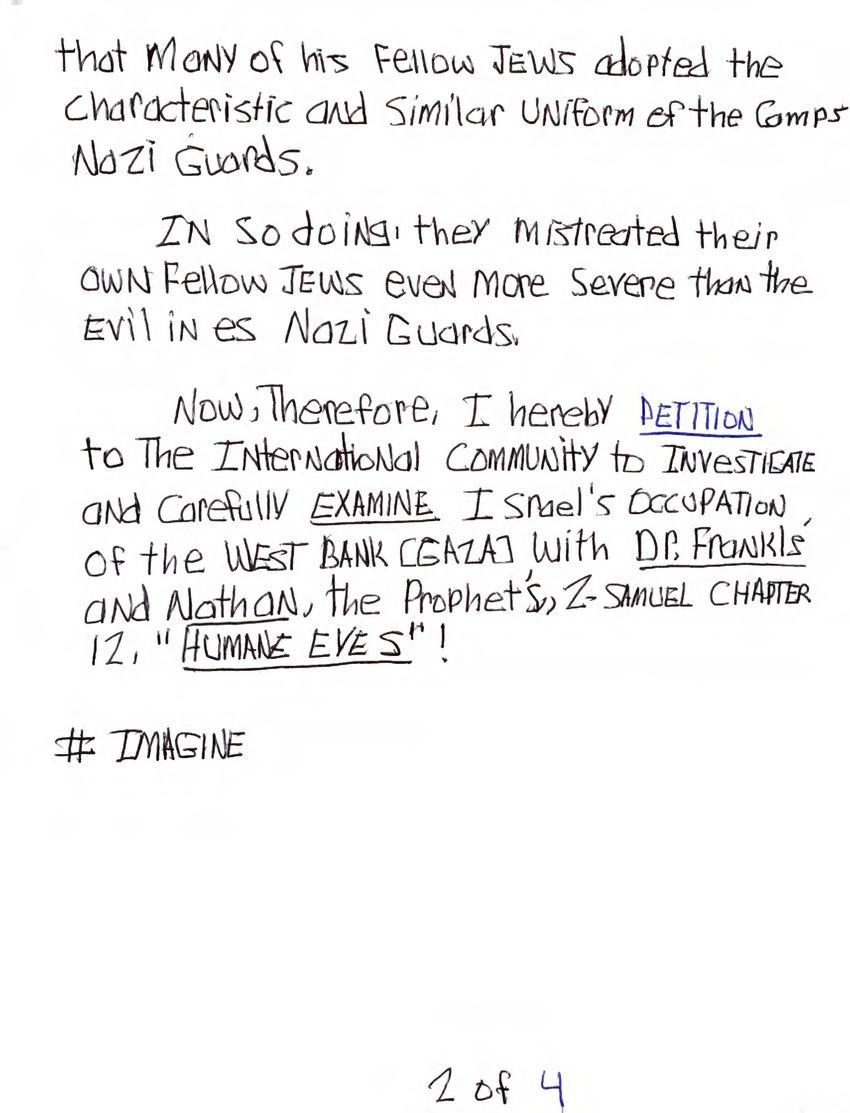 that many of his Fellow JEWS adopted the
characteristic and Similar UNiform of the Camps
Nazi Guards.
IN So doing, they mistreated their
OWN Fellow JEWS even More Severe than the
Evil in es Nazi Guards.
Now, Therefore, I hereby PETITION
to The INterNatioNal COMMUNity to INVeSTIGATE
and Carefully EXAMINE ISrael's OCCUPATION
of the WEST BANK [GAZA] with Dr. Frankls'
and Nathan, the Prophet's, 2-SAMUEL CHAPTER
12, "HUMANE EYES"!
# IMAGINE
2 of 4